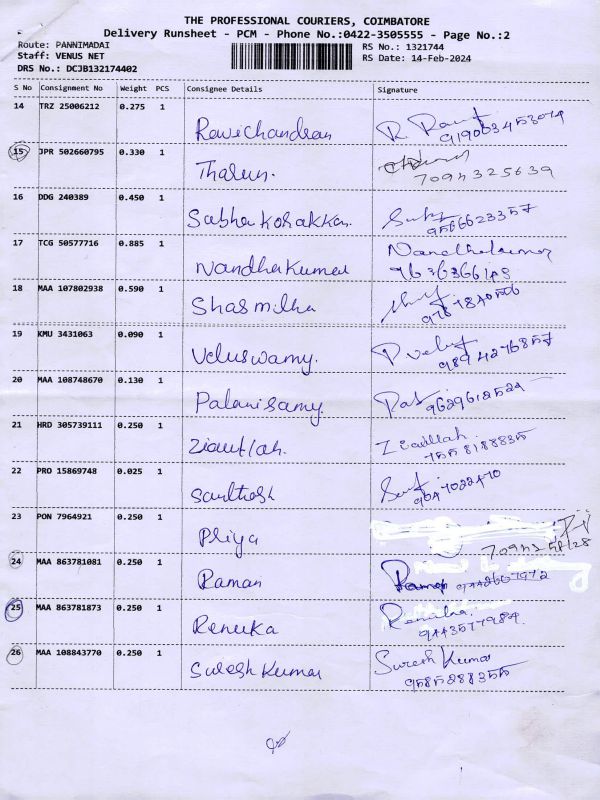 THE PROFESSIONAL COURIERS, COIMBATORE
Delivery Runsheet - PCM - Phone No.:0422-3505555 - Page No.:2
Route: PANNIMADAI RS No.: 1321744
Staff: VENUS NET RS Date: 14-Feb-2024
DRS No.: DCJB132174402
S No Consignment No Weight PCS Consignee Details Signature
14 TRZ 25006212 0.275 1 Ravichandran
15 JPR 502660795 0.330 1 Tharun.
7094325639
16 DDG 240389 0.450 1
9566623357
17 TCG 50577716 0.885 1 Nandhakumar Nandhakumar
18 MAA 107802938 0.590 1 Sharmitha
19 KMU 3431063 0.090 1 Veluswamy. P velu
9894276857
20 MAA 108748670 0.130 1 Palanisamy.
21 HRD 305739111 0.250 1
22 PRO 15869748 0.025 1 Santhosh
9047022470
23 PON 7964921 0.250 1 Priya
24 MAA 863781081 0.250 1 Raman Raman
25 MAA 863781873 0.250 1 Renuka Renuka
9443577984
26 MAA 108843770 0.250 1 Suresh Kumar Suresh Kumar
9585288355